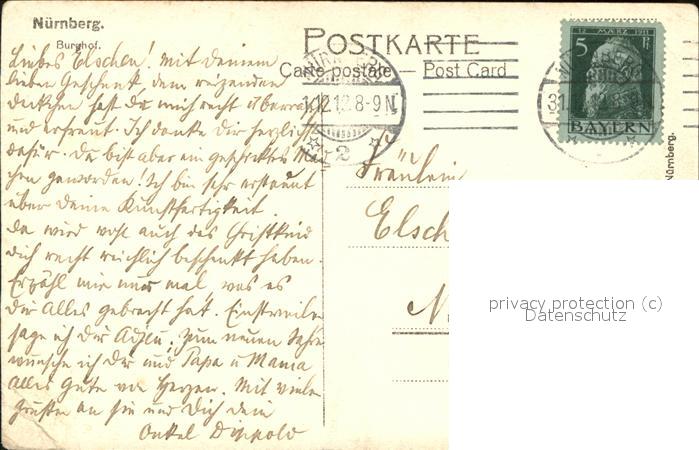 Nürnberg.
Burghof.
POSTKARTE
Carte postale — Post Card
12. MÄRZ 1911
5 Pf
BAYERN
NÜRNBERG
31.12.12.8-9N
2
Liebes Elschen! Mit Deinem
lieben Geschenk, dem reizenden
Deckchen hast Du mich recht überrascht
und erfreut. Ich danke Dir herzlich
dafür. Du bist aber ein geschicktes
chen geworden! Ich bin sehr erstaunt
über Deine Kunstfertigkeit.
Da wird wohl auch das Christkind
Dich recht reichlich beschenkt haben.
Erzähl mir nur mal, was es
Dir Alles gebracht hat. Einstweilen
sage ich Dir Adjeu! Zum neuen Jahre
wünsche ich Dir und Papa u Mama
Alles Gute von Herzen. Mit vielen
Grüßen an sie und Dich Dein
Onkel Dippold
Fräulein
Elsch
N
Nürnberg.
privacy protection (c)
Datenschutz